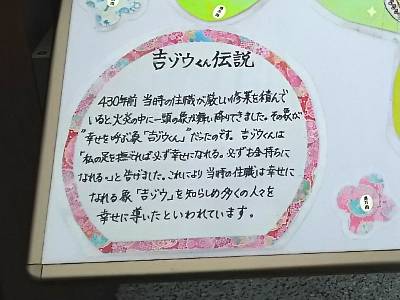 吉ゾウくん伝説
430年前 当時の住職が厳しい修業を積んで
いると火炎の中に一頭の象が舞い降りてきました。その象が
"幸せを呼ぶ象「吉ゾウくん」"だったのです。吉ゾウくんは
「私の足を撫ぜれば必ず幸せになれる。必ずお金持ちに
なれる。」と告げました。これにより当時の住職は幸せに
なれる象「吉ゾウ」を知らしめ多くの人々を
幸せに導いたといわれています。